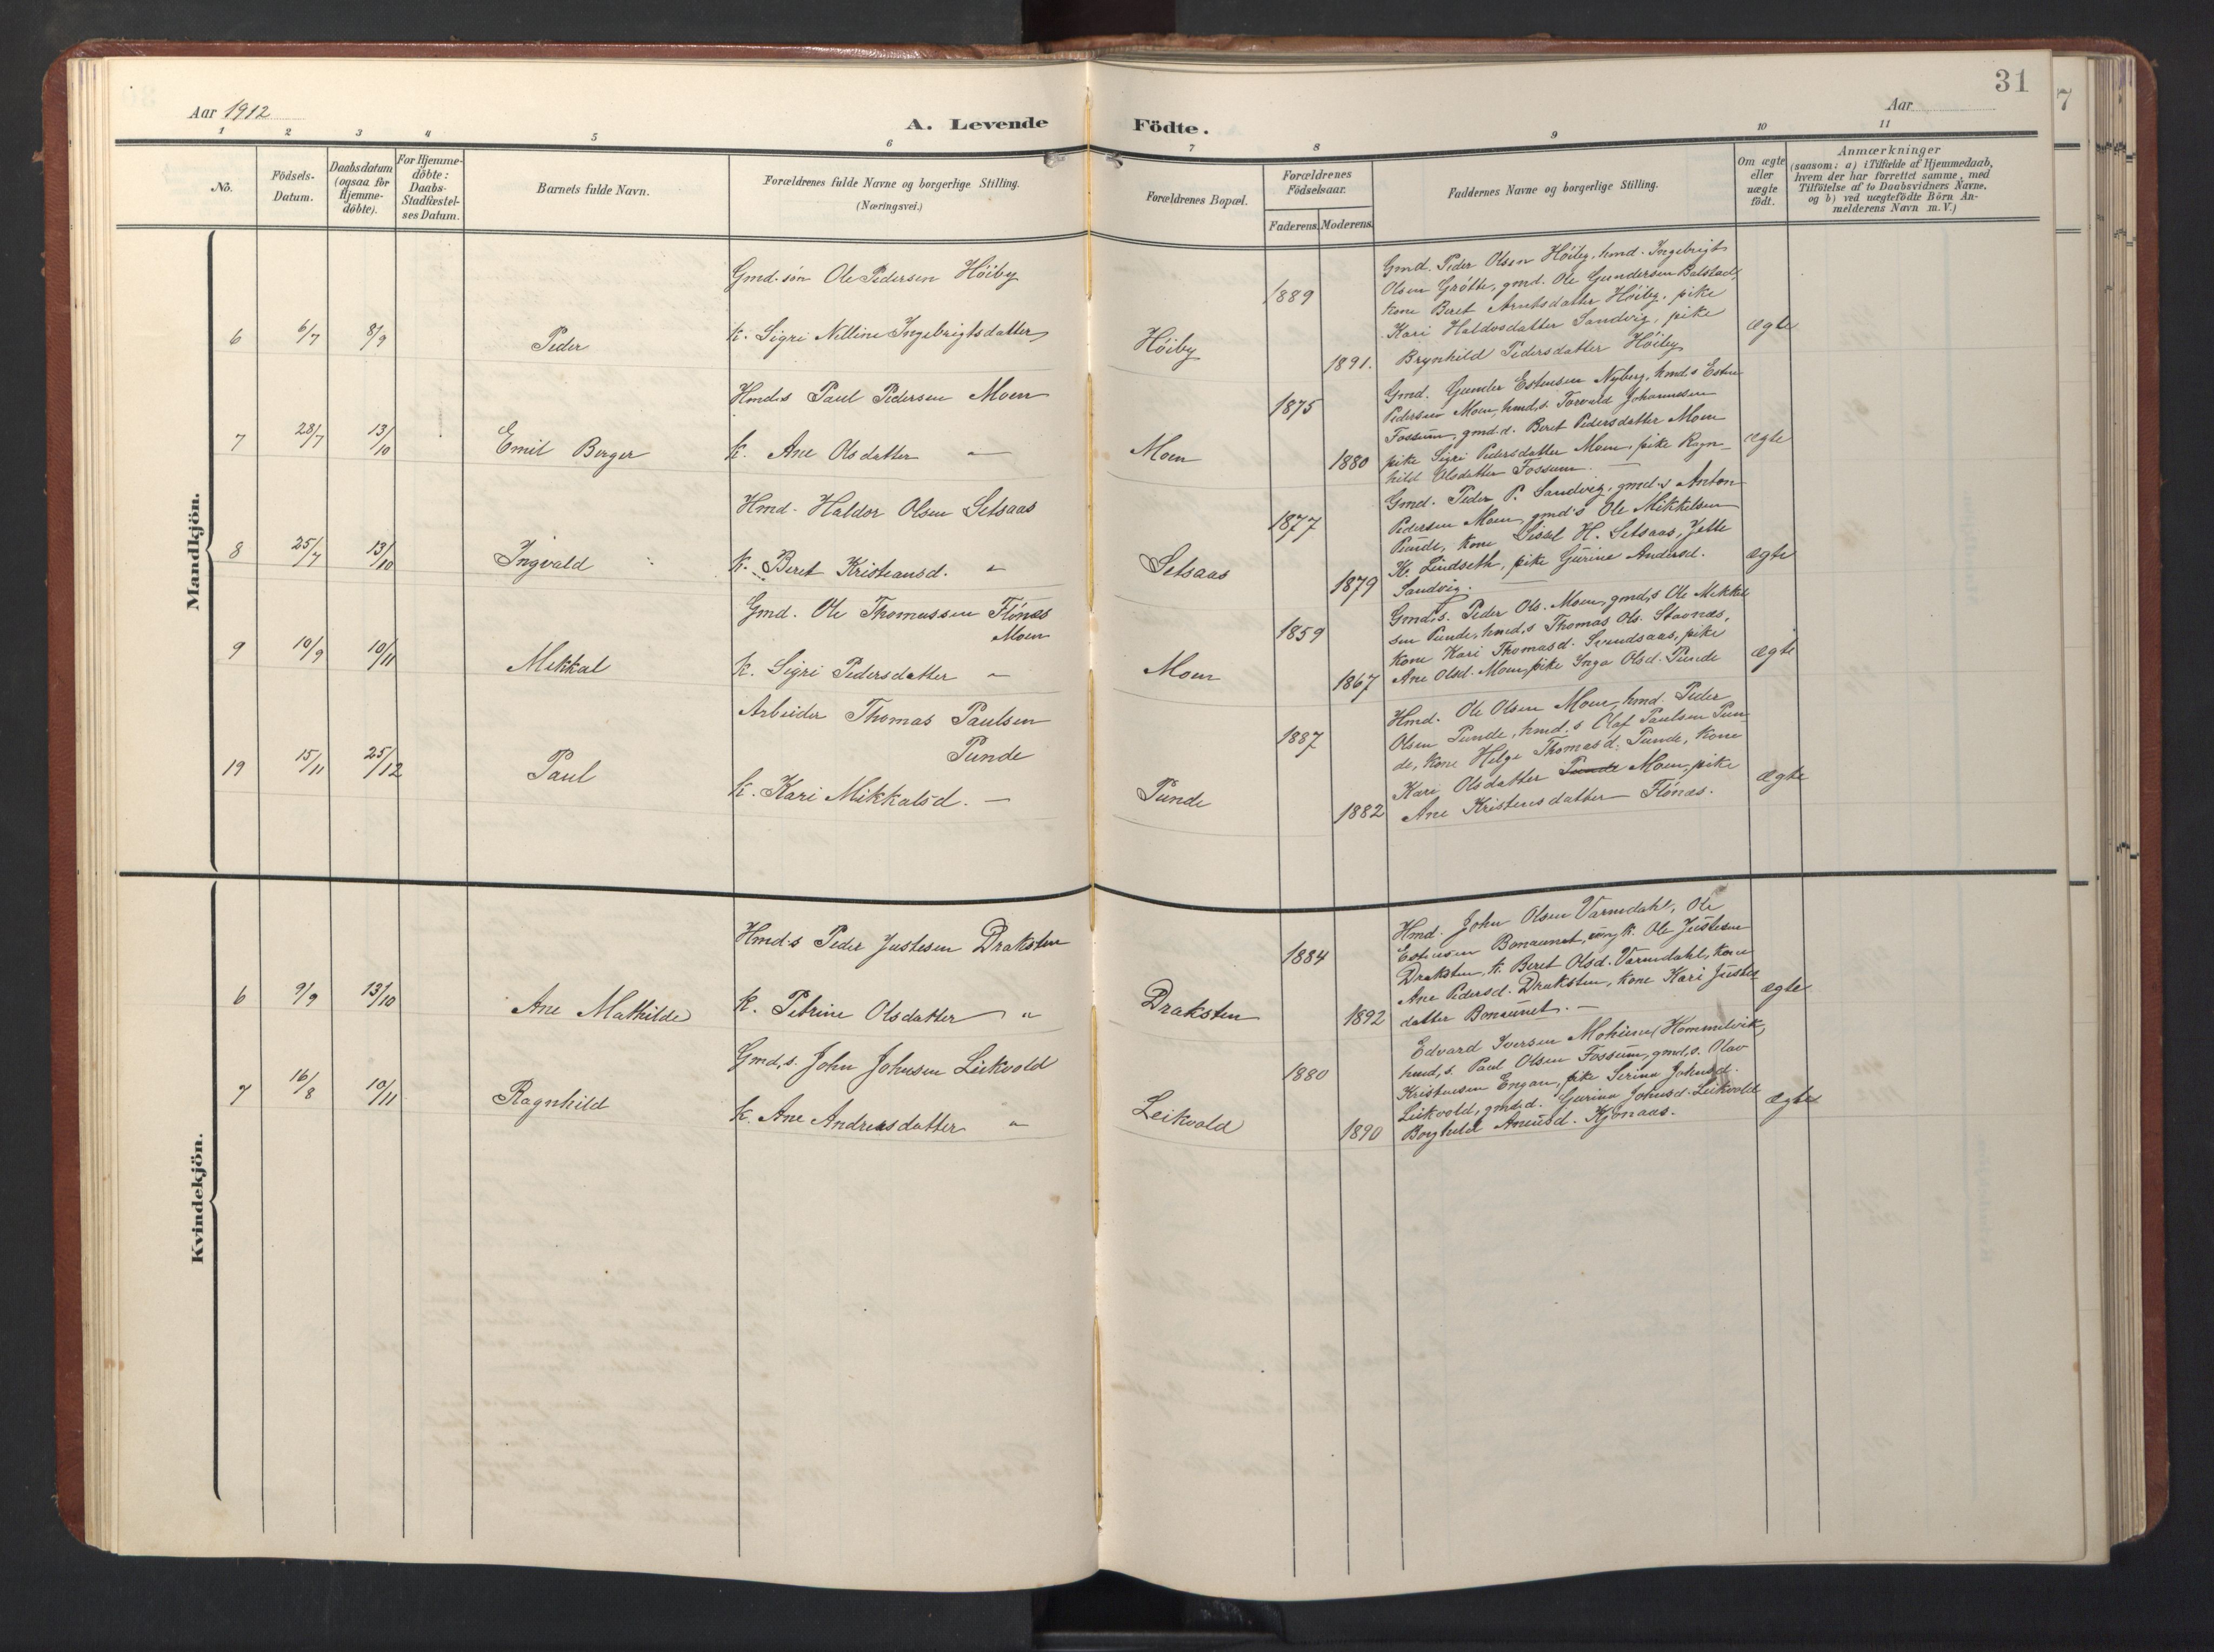 31
7
Aar 1912
Aar
A. Levende Födte.
1 2 3 4 5 6 7 8 9 10 11
No.
Födsels-
Datum.
Daabsdatum
(ogsaa for
Hjemme-
döbte).
For Hjemme-
döbte:
Daabs-
Stadfæstel-
ses Datum.
Barnets fulde Navn.
Forældrenes fulde Navne og borgerlige Stilling.
(Næringsvei.)
Forældrenes Bopæl.
Forældrenes
Födselsaar.
Faderens. Moderens.
Faddernes Navne og borgerlige Stilling.
Om ægte
eller
uægte
födt.
Anmærkninger
(saasom: a) i Tilfælde af Hjemmedaab,
hvem der har forrettet samme, med
Tilföielse af to Daabsvidners Navne,
og b) ved uægtefödte Börn An-
melderens Navn m. V.)
Mandkjön.
6 6/7 8/9
Peder
Gmd. sön Ole Pedersen Höiby
k. Sigri Nelline Ingebrigtsdatter
Höiby
1889
1891.
Gmd. Peder Olsen Höiby, hmd. Ingebrigt
Olsen Grötte, gmd. Ole Gundersen Balstad,
kone Beret Arntsdatter Höiby, pike
Kari Haldosdatter Sandvig, pike
Brynhild Pedersdatter Höiby
ægte
7 28/7 13/10
Emil Berger
Hmd.s Paul Pedersen Moen
k. Ane Olsdatter "
Moen
1875
1880
Gmd. Gunder Estensen Nyberg, hmd.s Esten
Pedersen Moen, hmd.s. Torvald Johannesen
Fossum, gmd.d. Beret Pedersdatter Moen
pike Sigri Pedersdatter Moen, pike Ragn-
hild Olsdatter Fossum.
ægte
8 25/7 13/10
Ingvald
Hmd. Haldor Olsen Setsaas
k. Beret Kristiansd. "
Setsaas
1877
1879
Gmd. Peder P. Sandvig, gmd.s Anton
Pedersen Moen, gmd.s Ole Mikkelsen
Punde, kone Sissel H. Setsaas, Jette
K. Lindseth, pike Gurine Andersd.
Sandvig.
ægte
9 10/9 10/11
Mikkal
Gmd. Ole Thomassen Flönæs
Moen
k. Sigri Pedersdatter "
Moen
1859
1867
Gmd.s. Peder Ols. Moen, gmd.s Ole Mikkel
sen Punde, hmd.s Thomas Ols. Stavnæs,
kone Kari Thomasd. Svendsaas, pike
Ane Olsd. Moen, pike Inga Olsd. Punde
ægte
19 15/11 25/12
Paul
Arbeider Thomas Paulsen
Punde
k. Kari Mikkalsd. "
Punde
1887
1882
Hmd. Ole Olsen Moen, hmd. Peder
Olsen Punde, hmd.s Olaf Paulsen Pun-
de, kone Helge Thomasd. Punde, kone
Kari Olsdatter Punde Moen, pike
Ane Kristensdatter Flönæs.
ægte
Kvindekjön.
6 9/9 13/10
Ane Mathilde
Hmd.s Peder Justesen Draksten
k. Petrine Olsdatter "
Draksten
1884
1892
Hmd. John Olsen Varmdahl, Ole
Estensen Bonaunet, ungk. Ole Justesen
Draksten, k. Beret Olsd. Varmdahl, kone
Ane Pedersd. Draksten, kone Kari Justes-
datter Bonaunet.
ægte
7 16/8 10/11
Ragnhild
Gmd.s. John Johnsen Leikvold
k. Ane Andreasdatter "
Leikvold
1880
1890
Edvard Iversen (Hommelvik,
hmd.s. Paul Olsen Fossum, gmd.s. Olav
Kristensen Engan, pike Serina Johnsd.
Leikvold, gmd.d. Gurina Johnsd. Leikvold
Borghild Kjönaas.
ægte